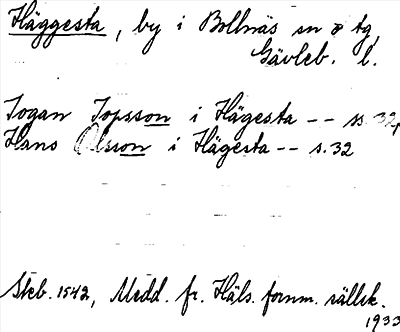 Häggesta, by i Bollnäs sn o tg,
Gävleb. l.
Jogan Jopsson i Hägesta -- s. 32,
Hans Olsson i Hägesta -- s. 32
Skb. 1542, Medd. fr. Häls. fornm. sällsk.
1933